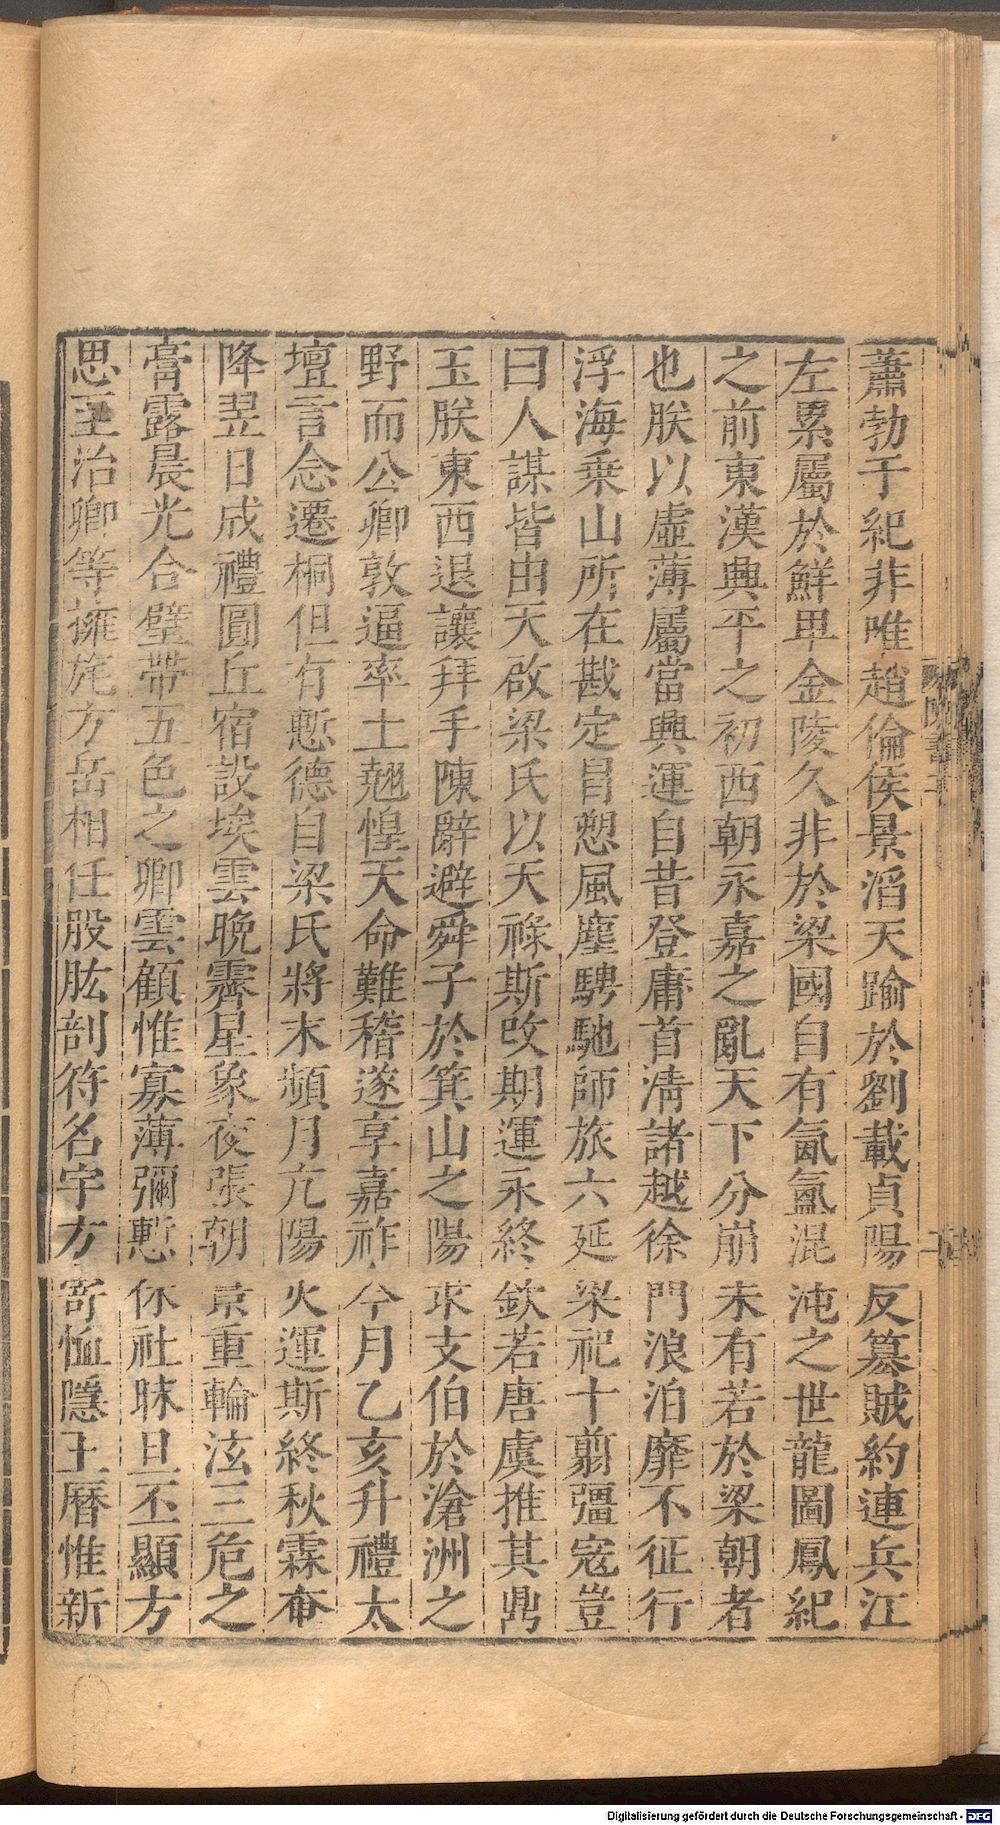 蕭勃于紀非唯趙倫侯景滔天踰於劉載貞陽反簒賊約連兵江
左累屬於鮮卑金陵久非於梁國自有氤氳混沌之世龍圖鳳紀
之前東漢興平之初西朝永嘉之亂天下分崩未有若於梁朝者
也朕以虛薄屬當興運自昔登庸首清諸越徐門浪泊靡不征行
浮海乗山所在戡定冒愬風塵騁馳師旅六延梁祀十翦彊寇豈
曰人謀皆由天啟梁氏以天祿斯改期運永終欽若唐虞推其鼎
玉朕東西退讓拜手陳辭避舜子於箕山之陽求支伯於滄洲之
野而公卿敦逼率土翹惶天命難稽遂享嘉祚今月乙亥升禮太
壇言念遷桐但有慙德自梁氏將末頻月亢陽火運斯終秋霖奄
降翌日成禮圓丘宿設埃雲晚霽星象夜張朝景重輪泫三危之
膏露晨光合璧帶五色之卿雲顧惟寡薄彌慙休社昧旦丕顯方
思至治卿等擁旄方岳相任股肱剖符名宇方寄恤隱王曆惟新
Digitalisierung gefördert durch die Deutsche Forschungsgemeinschaft - DFG